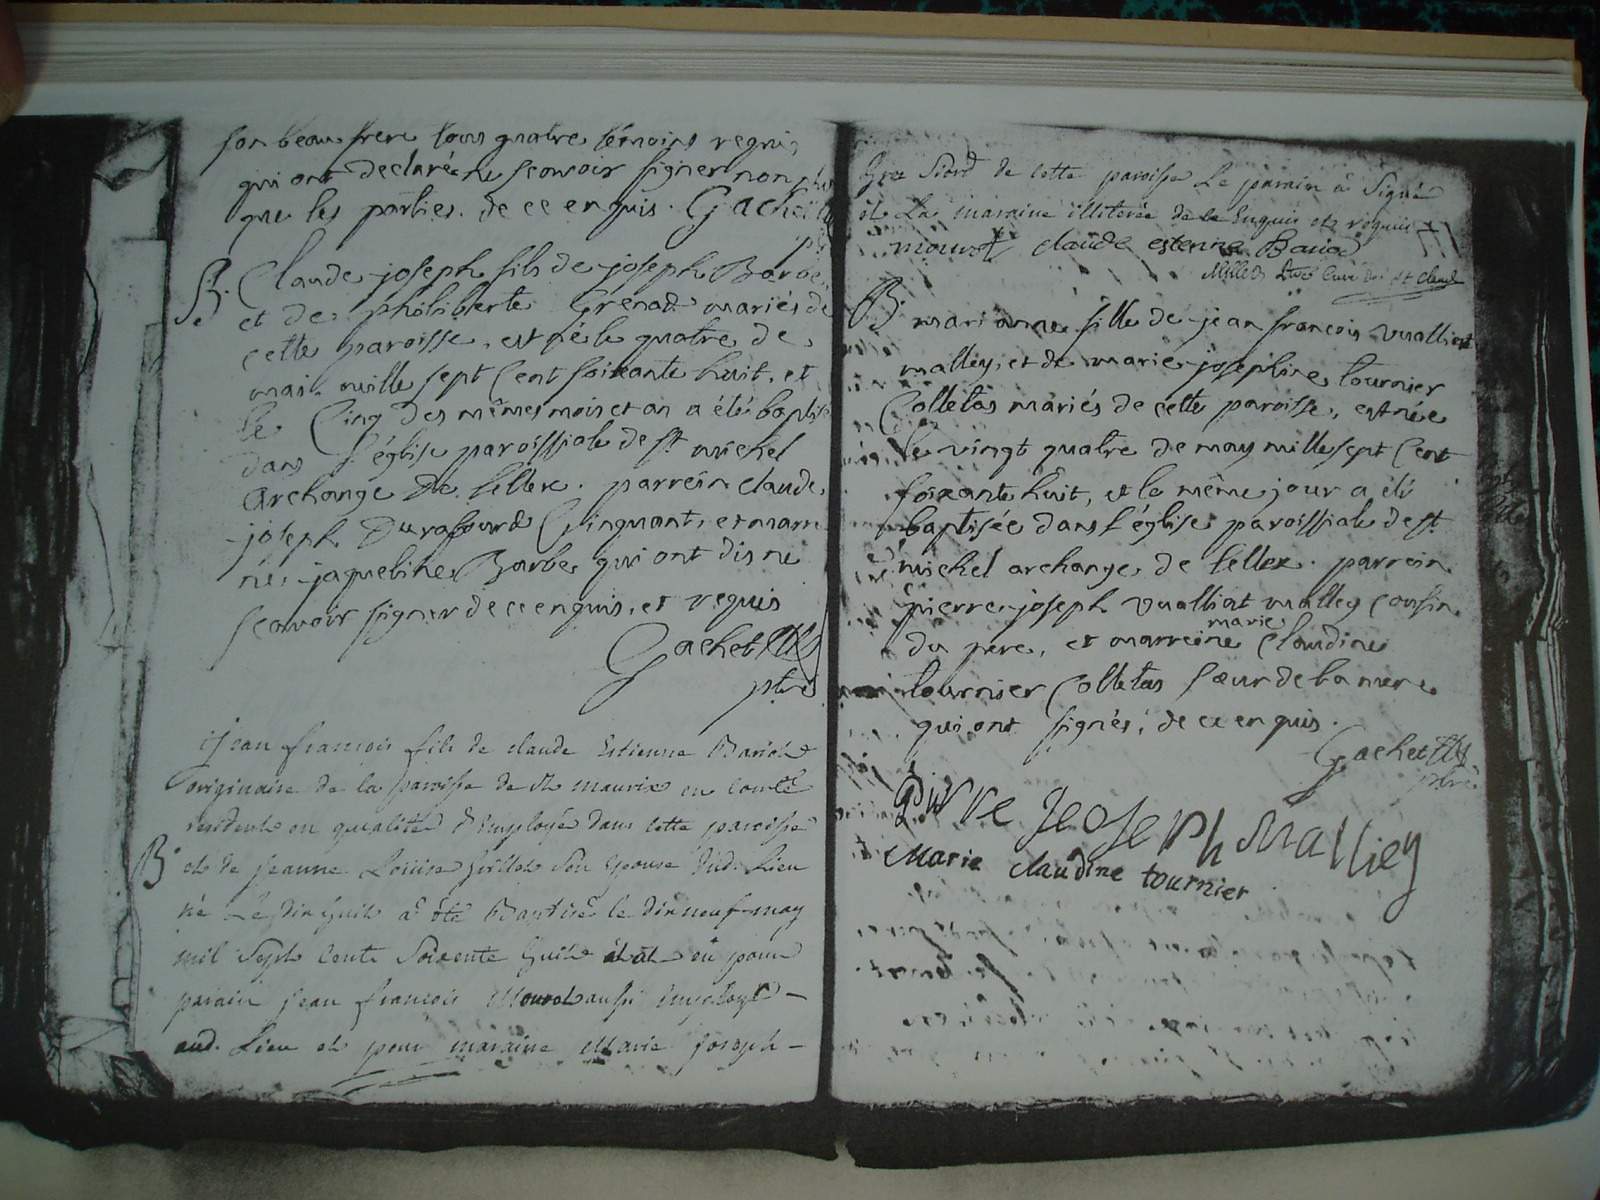 son beau frere tous quatre témoins requis
qui ont declaré ne scavoir signer non plus
que les parties. de ce enquis. Gachet
ptre
B. Claude joseph fils de joseph Barbe
et de philiberte Grenad mariés de
cette paroisse, est né le quatre de
mai mille sept Cent soixante huit, et
le Cinq des mêmes mois et an a été baptisé
dans l'église paroissiale de st michel
archange de lellex. parrein claude
joseph Durafourd Cinquant, et marre
ne jaqueline Barbe qui ont dis ne
scavoir signer de ce enquis, et requis
Gachet
ptre
jean francois fils de claude Estienne Bariod
originaire de la paroisse de st maurix en comté
residente en quialité d'Employé dans cette paroisse
B et de jeanne Louise grillet son epouse dud. Lieu
né Le dix huit a été Baptisé le dix neuf may
mil Sept Cents Soixente huit et at eu pour
parain jean francois Mourot aussi Employé -
aud. Lieu et pour maraine Marie joseph -
Gros Siord de cette paroisse Le parain a Signé
et La maraine illiterée de ce Enquis etz requis
mourot claude estenne Bariod
Millet Curé de st claude
B. marianne fille de jean francois vualliat
malley, et de marie josephine tournier
Colletas mariés de cette paroisse, est née
le vingt quatre de may mille sept Cent
soixante huit, et le même jour a été
baptisée dans l'église paroissiale de st
michel archange de lellex. parrein
pierre joseph vualliat malley cousin
marie
du pere, et marreine Claudine
tournier Colletas sœur de la mere
qui ont signés, de ce enquis.
Gachet
ptre
Pierre Jeoseph Malliey
Marie claudine tournier